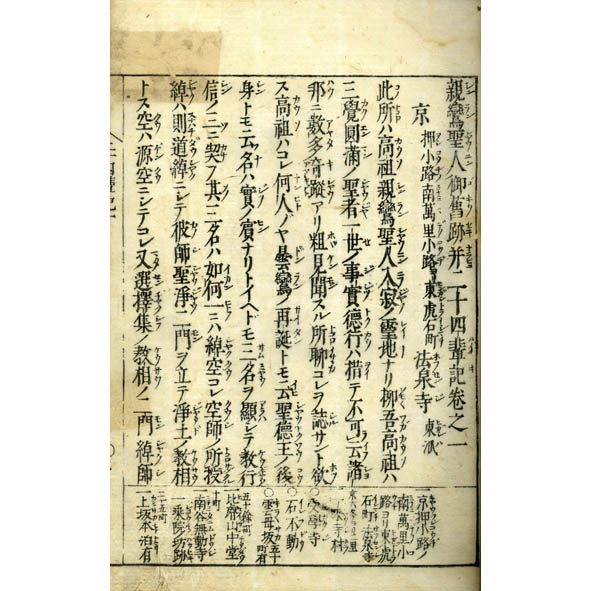 親鸞聖人御舊跡并二十四輩記卷之一
京 押小路南萬里小路ヨリ東虎石町 法泉寺 東派
此所ハ高祖親鸞聖人入寂ノ靈地ナリ抑吾高祖ハ
三覺圓滿ノ聖者一世ノ事實德行ハ措テ不可云諸
邪ニ數多ノ奇蹤アリ粗見聞スル所聊コレヲ誌サント欲
ス高祖ハコレ何人ノヤ曇鸞ノ再誕トモ云聖德王ノ後
身トモ云名ハ實ノ賓ナリトイヘドモ三名ヲ顯シテ教行
信ノ三ニ契フ其三名ハ如何一ニハ綽空コレ空師ノ所授
綽ハ則道綽ニシテ彼師聖淨二門ヲ立テ淨土ノ教相
トス空ハ源空ニシテコレ又選擇集ノ教相ノ二門綽師
一京押小路ノ
南萬里小
路ヨリ東虎
石町法泉寺
石不動
雲母坂
比叡山中堂
一南谷無動寺
一乘院坊跡
上坂本泊有